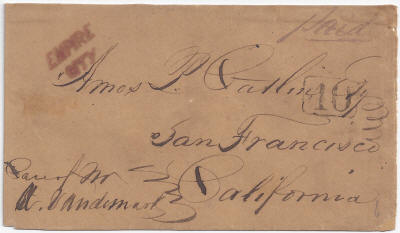 paid
EMPIRE
CITY
Amos P. Catlin Esq
10
San Francisco
Care of Mr
A. Vandemark
California